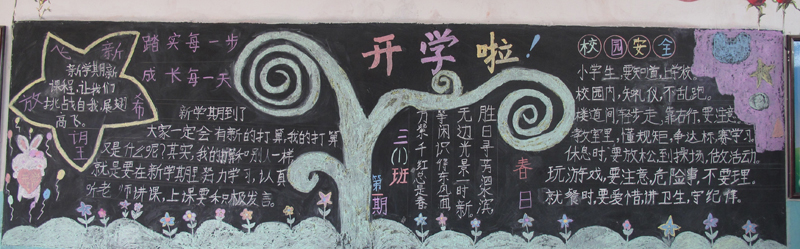 放飞新希望
新学期新
课程,让我们
挑战自我展翅
高飞。
踏实每一步
成长每一天
开学啦!
新学期到了
大家一定会有新的打算,我的打算
又是什么呢?其实,我的和别人一样,
就是要在新学期里努力学习,认真
听老师讲课,上课要积极发言。
三(1)班
第 期
春日
胜日寻芳泗水滨
无边光景一时新
等闲识得东风面
万紫千红总是春
校园安全
小学生,要知道,上学校
校园内,知礼仪,不乱跑。
楼道间,轻步走,靠右行,要注意
教室里,懂规矩,争达标,赛学习。
休息时,要放松,到操场,做活动。
玩游戏,要注意,危险事,不要理。
就餐时,要爱惜,讲卫生,守纪律。